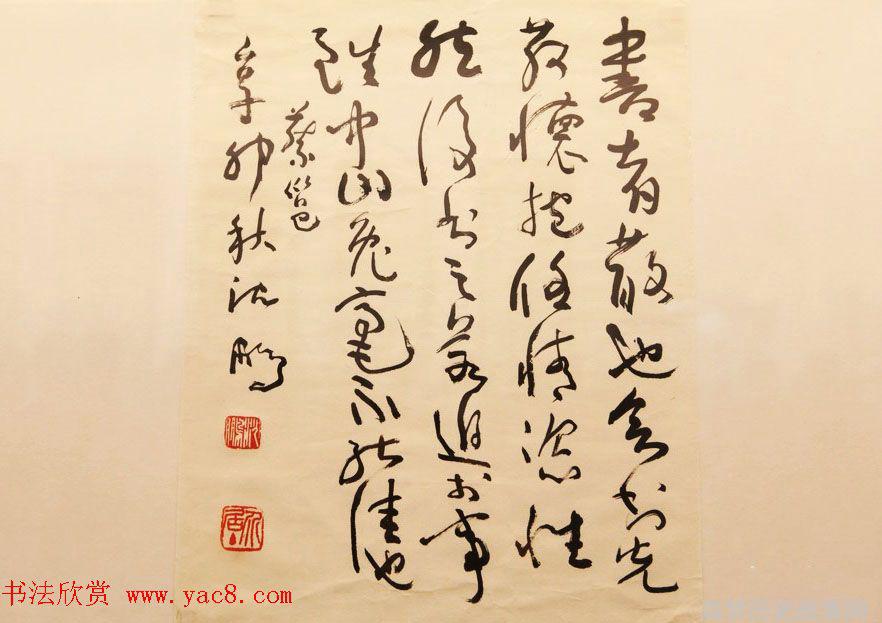 書者散也欲書先
散懷抱任情恣性
然後書之若迫於事
雖中山兔毫不能佳也
蔡邕
辛卯秋沈鵬
书法欣赏 www.yac8.com